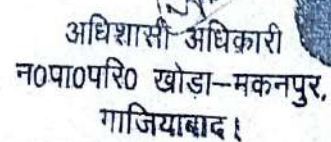 अधिशासी अधिकारी
न0पा0परि0 खोड़ा-मकनपुर,
गाजियाबाद।